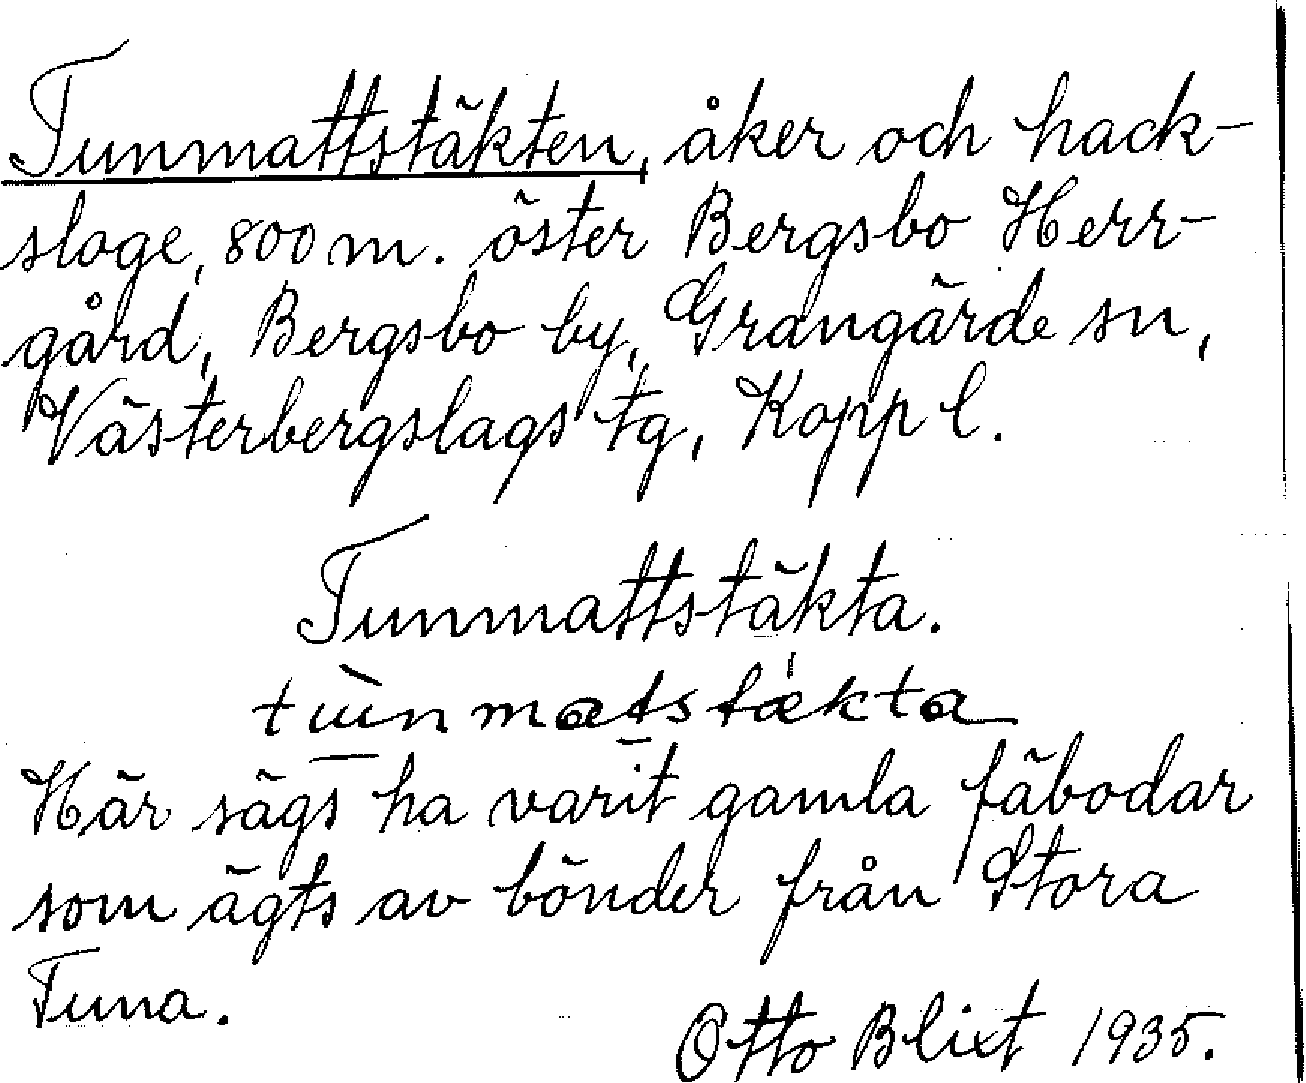 Tunmattstäkten, åker och hack-
sloge, 800 m. öster Bergsbo Herr-
gård, Bergsbo by, Grangärde sn,
Västerbergslags tg, Kopp l.
Tunmattstäkta.
tùnmatstækta
Här sägs ha varit gamla fäbodar
som ägts av bönder från Stora
Tuna.
Otto Blixt 1935.